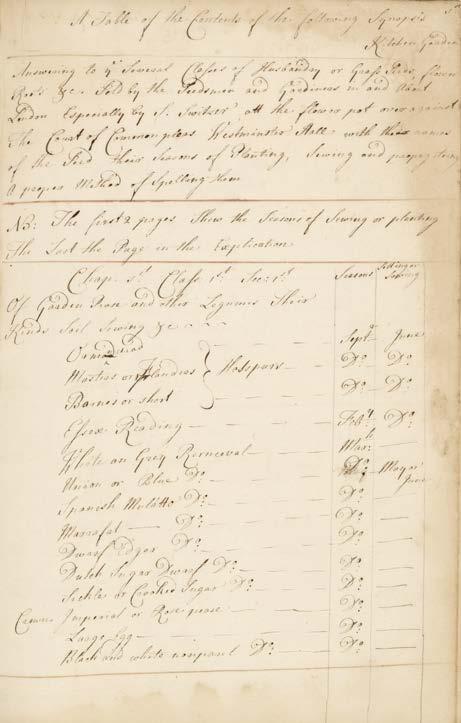 A Table of the Contents of the following Synopsis
Kitchen Garden
Answering to ye Several Classes of Husbandry or Grass Seeds, flower
Roots &c. Sold by the Seedsmen and Gardeners in and about
London Especially by S. Switzer att the flower pot over against
The Court of Common pleas Westminster Hall with their names
of the Seed their Seasons of Planting, Sewing and propagating
A proper Method of Spelling them
NB: The first 2 pages Shew the Seasons of Sewing or planting
The Last the Page in the Explication
Chap. 1st. Class 1st. Sec: 1st Seasons Sewing
Of Garden Pease and other Legumes Their
Kinds Soil Sewing &c
Ormadread Sept June
Masters or Flanders Hotspurs Do. Do.
Barnes or short Do. Do.
Essex Reading Feb. Do.
White or Grey Rernceval Mar:
Union or Blue Do. Do. May or June
Spanish Mulatto Do. Do.
Marrafat Do. Do.
Dwarf Edgar Do. Do.
Dutch Sugar Dwarf Do. Do.
Sickle or Crooked Sugar Do. Do.
Crown Imperial or Rose pease Do.
Large Egg Do.
Black and white nonparel Do. Do.